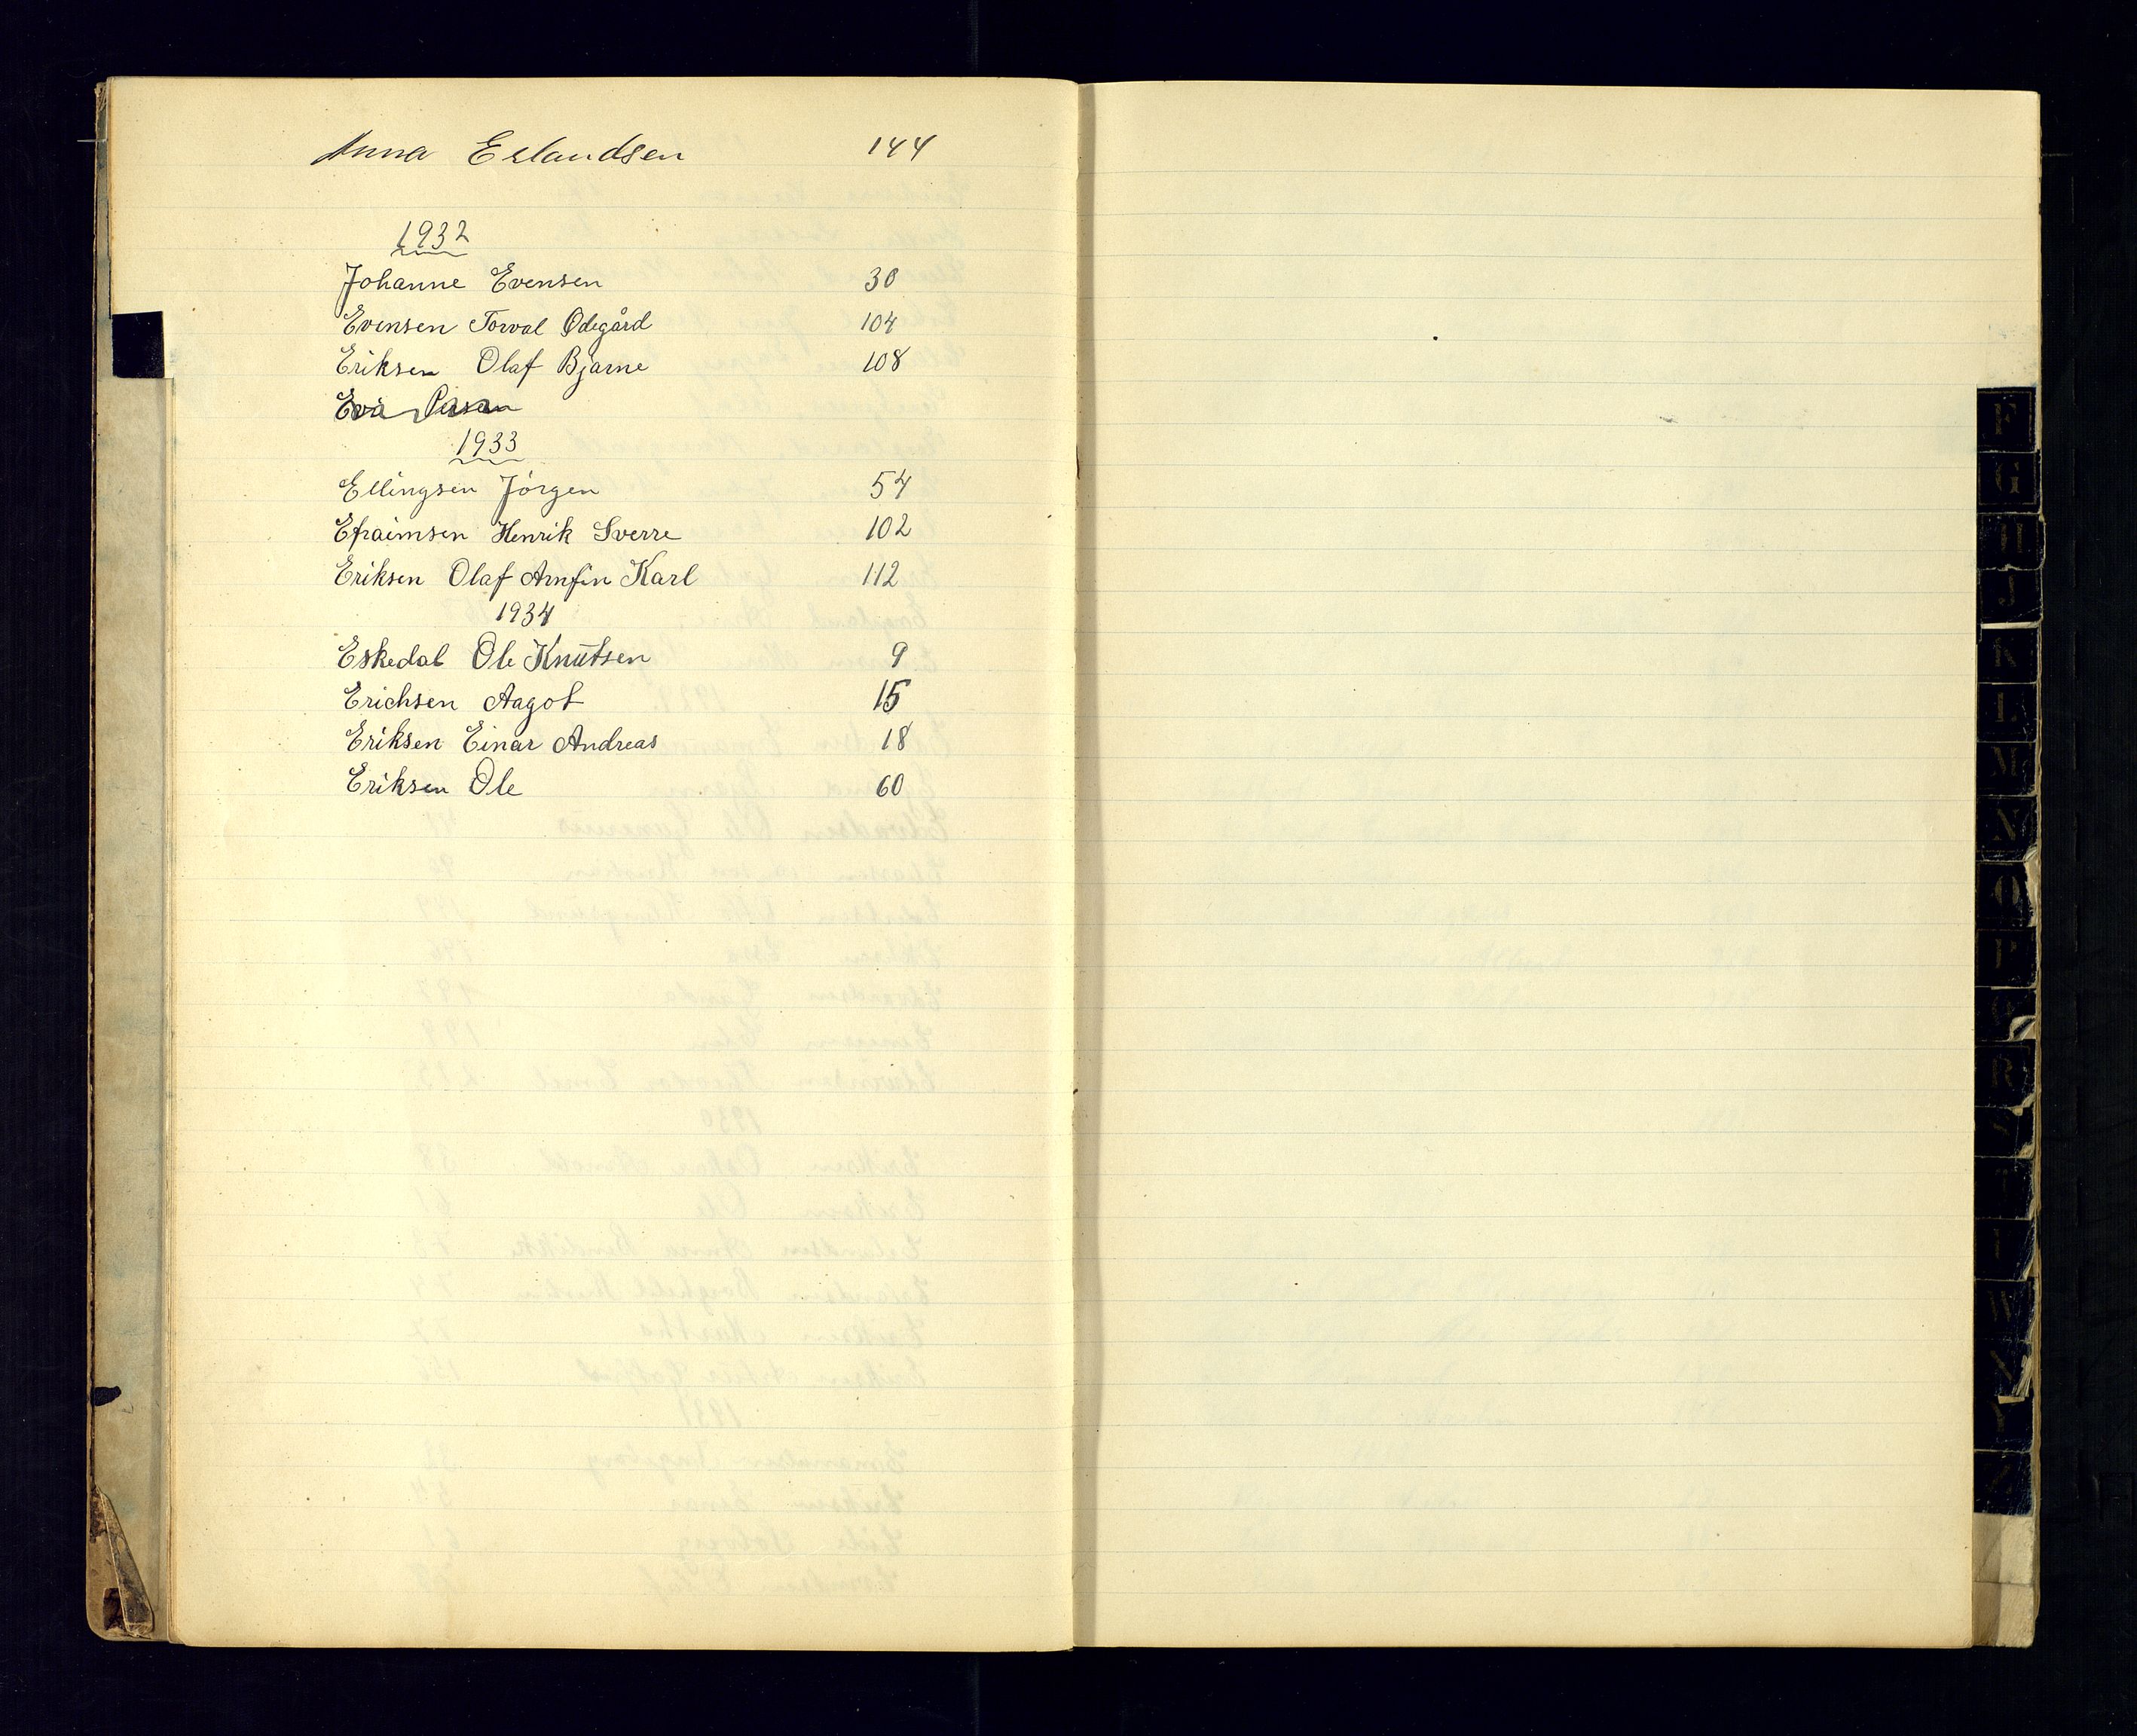 Anna Erlandsen 144
1932
Johanne Evensen 30
Evensen Torval Odegård 104
Eriksen Olaf Bjarne 108
Eva
1933
Ellingsen Jörgen 54
Efraimsen Henrik Sverre 102
Eriksen Olaf Arnfin Karl 112
1934
Eskedal Ole Knutsen 9
Erichsen Aagot 15
Eriksen Einar Andreas 18
Eriksen Ole 60
F
G
H
J
K
L
M
N
O
P
R
W